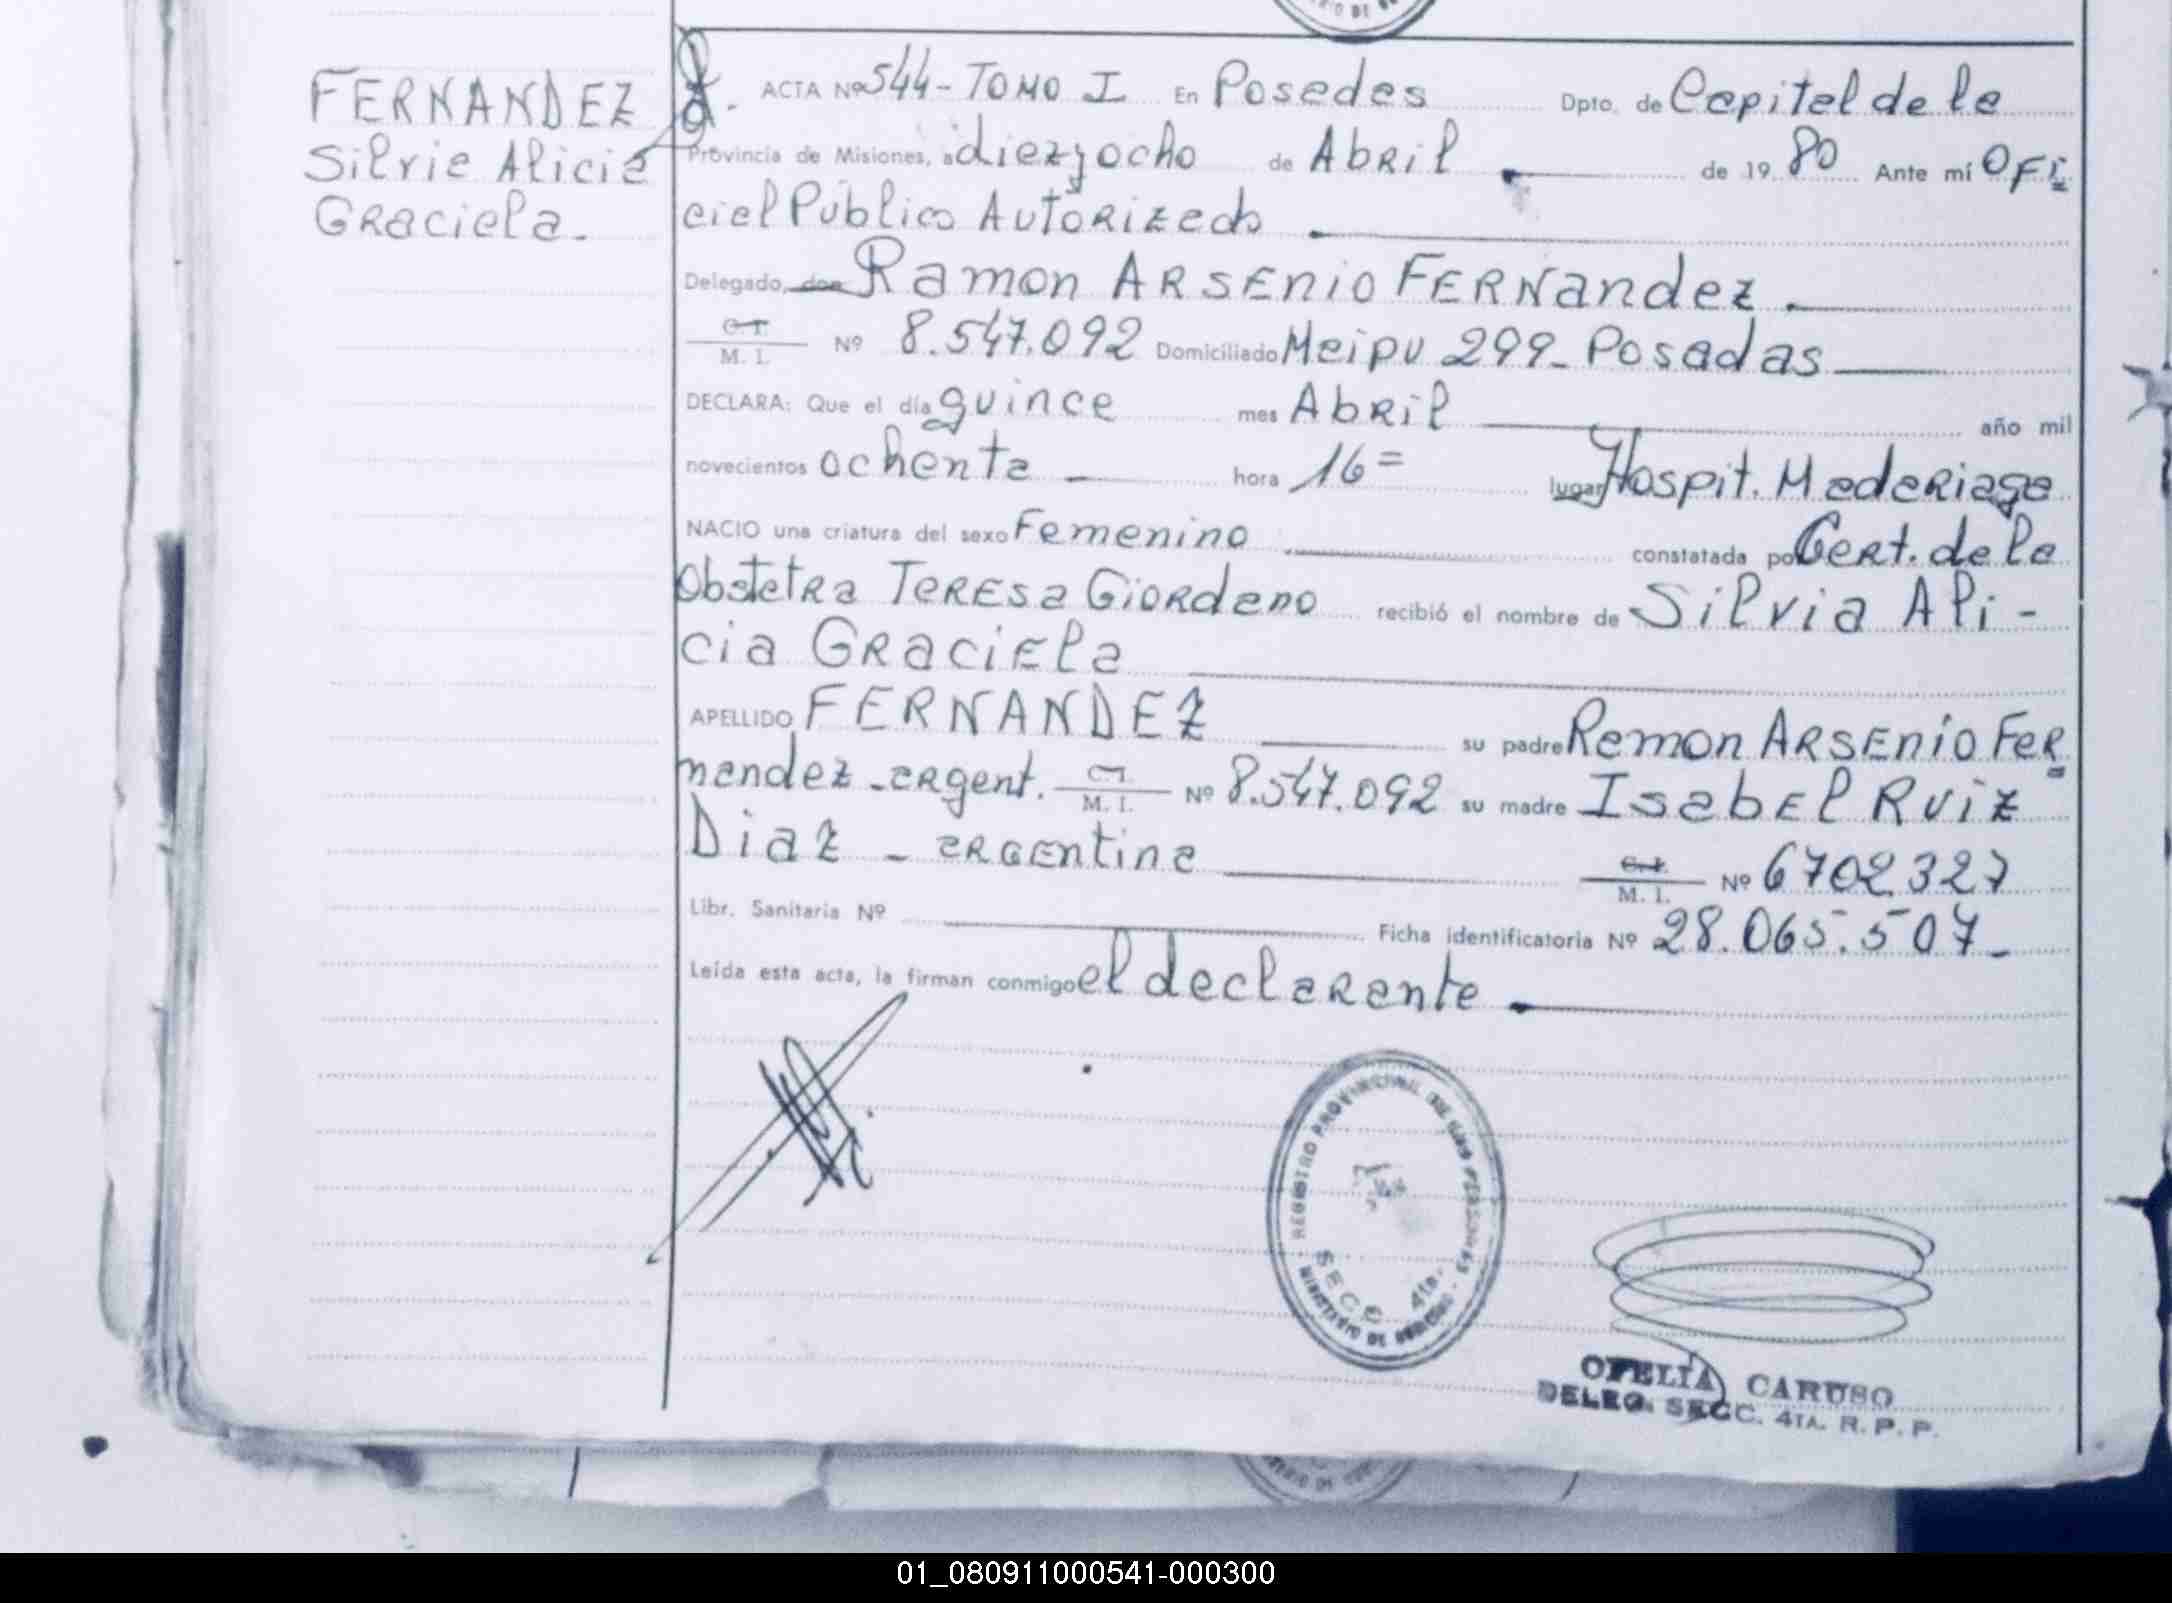 FERNANDEZ
Silvia Alicia
Graciela.
ACTA Nº 544 - TOMO I En Posadas Dpto. de Capital de la
Provincia de Misiones, a diez y ocho de Abril de 1980 Ante mí Ofi
cial Público Autorizado
Delegado, don Ramon Arsenio Fernandez.
C. I.
M. I. Nº 8.547.092 Domiciliado Maipu 299 - Posadas
DECLARA: Que el día quince mes Abril año mil
novecientos ochenta hora 16= lugar Hospit. Madariaga
NACIO una criatura del sexo Femenino constatada por Cert. de la
Obstetra Teresa Giordano recibió el nombre de Silvia Ali-
cia Graciela
APELLIDO FERNANDEZ su padre Ramon Arsenio Fer
nandez - argent. C. I. M. I. Nº 8.547.092 su madre Isabel Ruiz
Diaz - argentina C. I. M. I. Nº 6702327
Libr. Sanitaria Nº Ficha identificatoria Nº 28.065.507 -
Leída esta acta, la firman conmigo el declarante
REGISTRO PROVINCIAL DE LAS PERSONAS
SECC 4ta.
MINISTERIO DE GOBIERNO
OFELIA CARUSO
DELEG. SECC. 4TA. R. P. P.
01_080911000541-000300